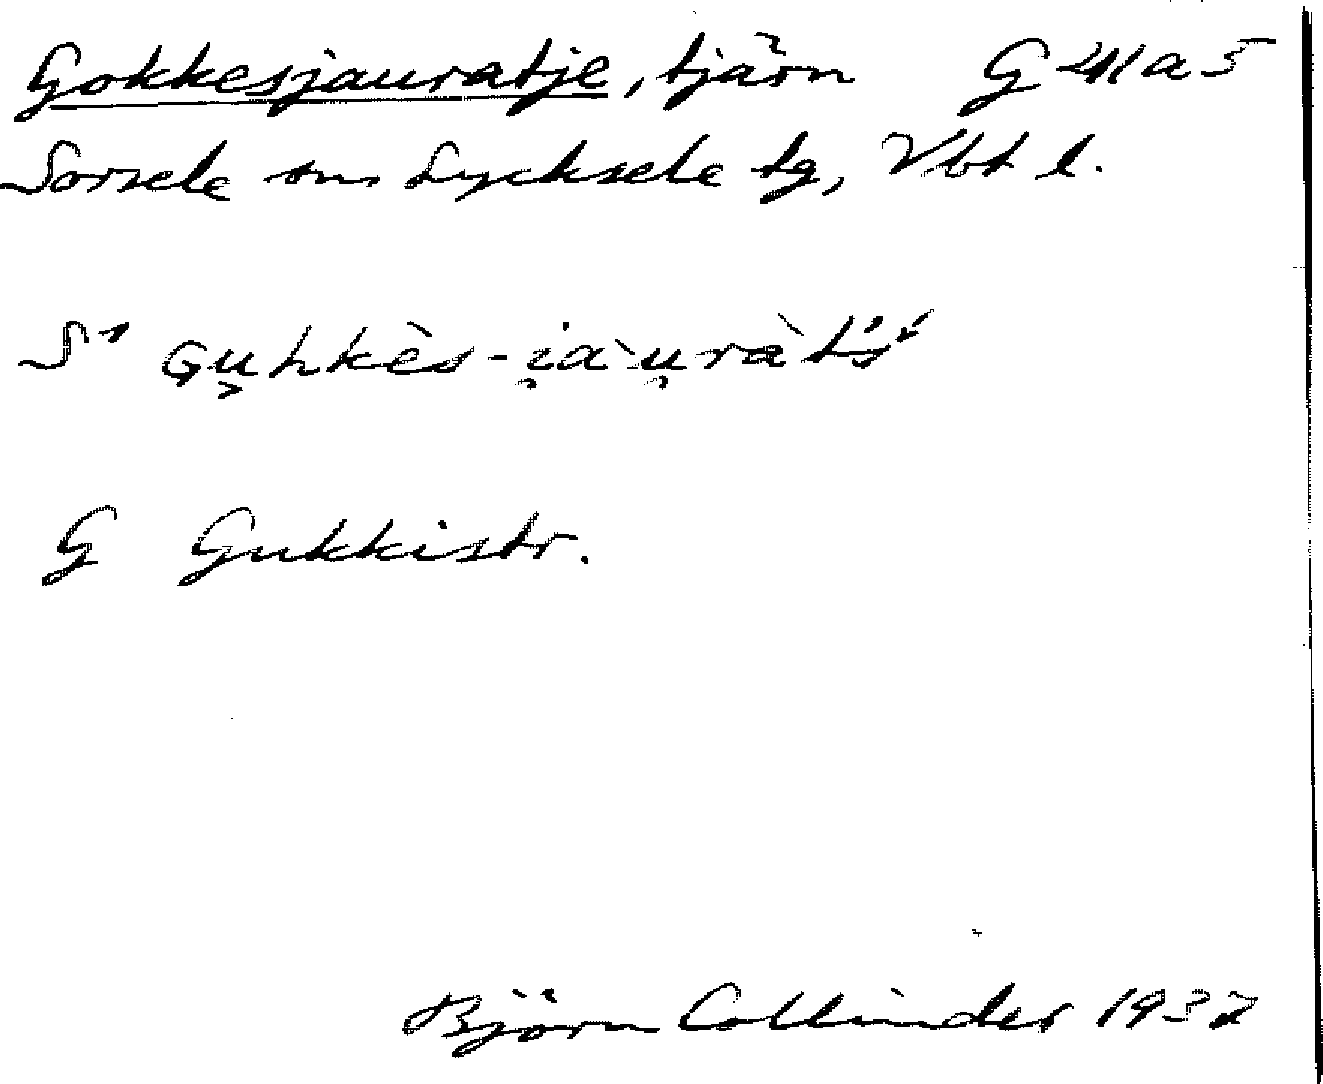 Gokkesjauratje, tjärn G 41 a 5
Sorsele sn. Lycksele tg, Vbt l.
S¹ Gu̬hkès-i̯aˋu̯ràt́ś
G Gukkistr.
Björn Collinder 1937